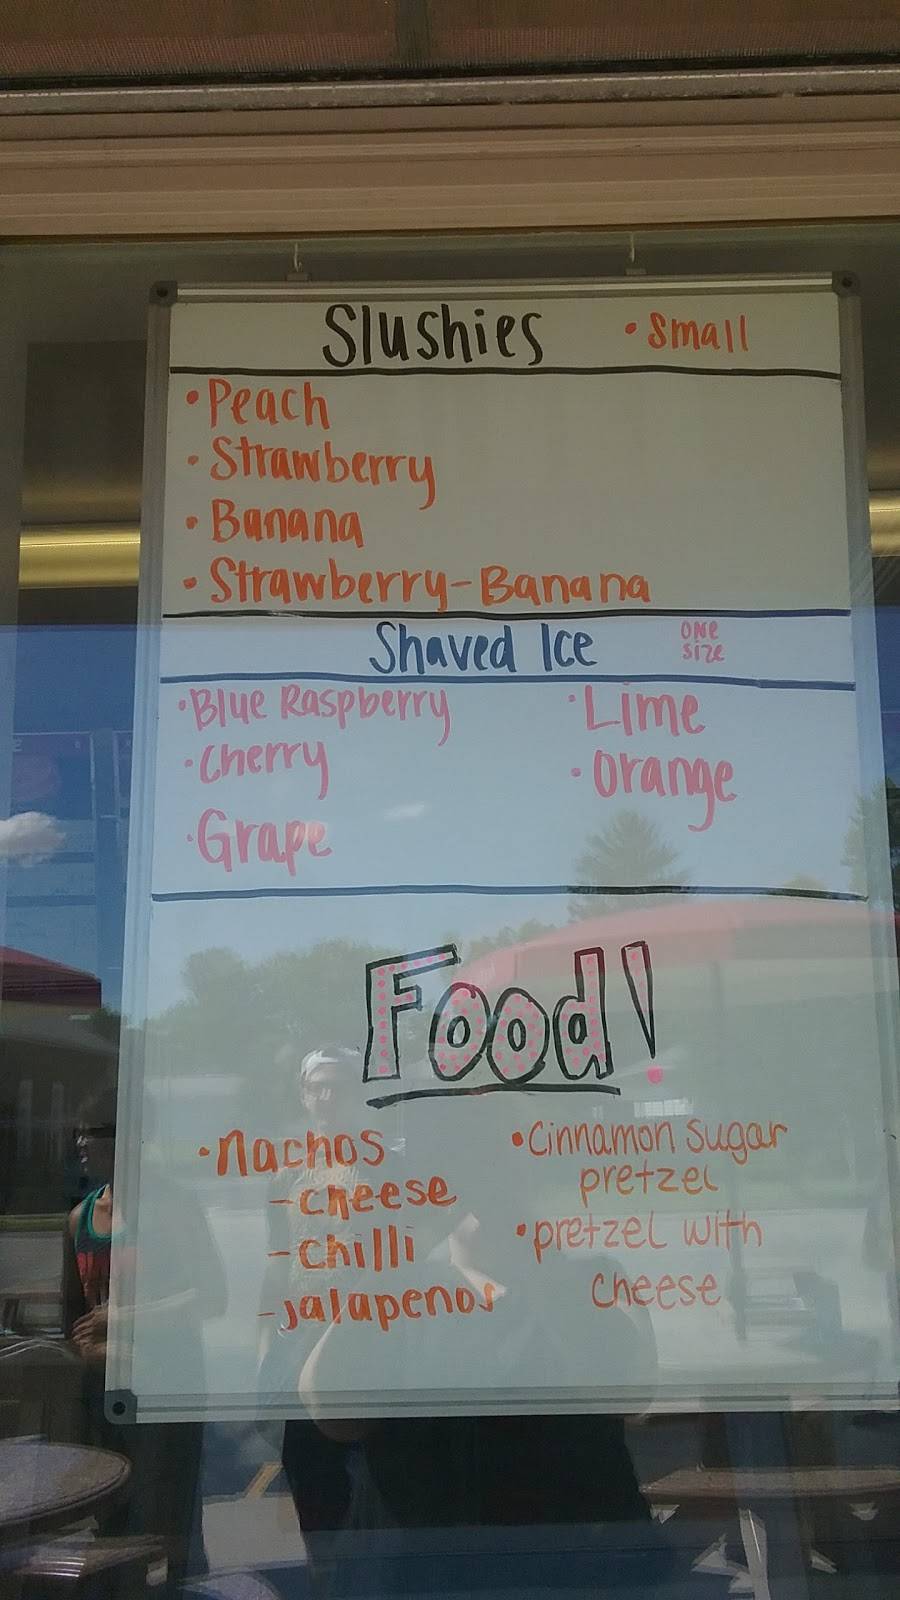 Slushies • Small
• Peach
• Strawberry
• Banana
• Strawberry-Banana
Shaved Ice ONE
size
• Blue Raspberry
• Cherry
• Grape
• Lime
• Orange
Food!
• Nachos
- cheese
- chilli
- jalapenos
• Cinnamon Sugar
pretzel
• pretzel with
cheese